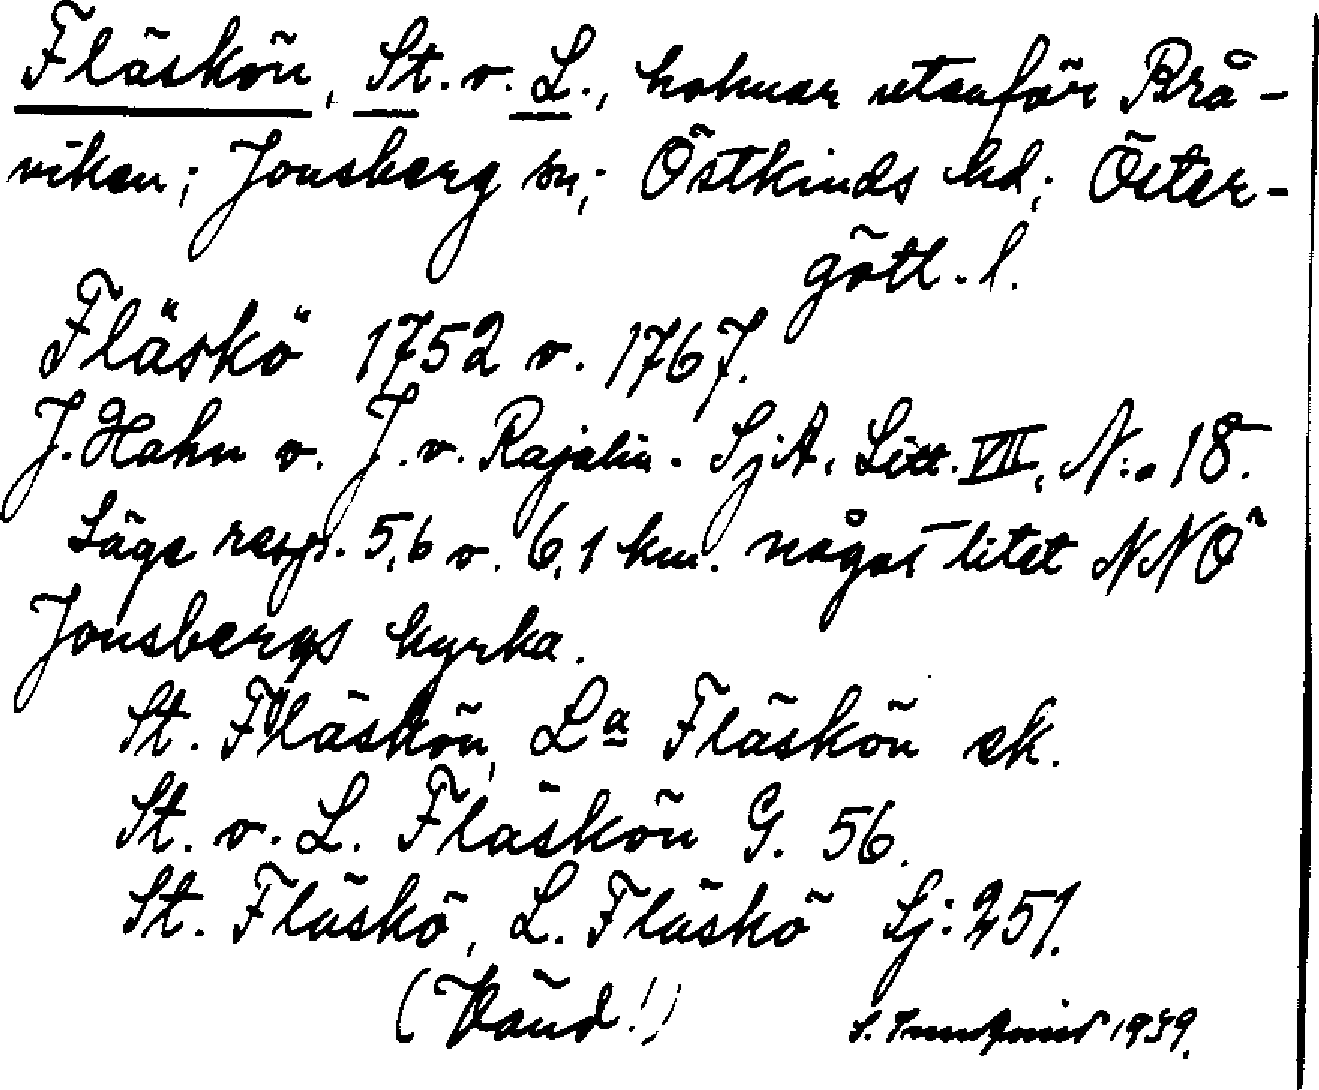 Fläskön, St. o. L., holmar utanför Brå-
viken; Jonsberg sn; Östkinds hd; Öster-
götl. l.
Fläskö 1752 o. 1767.
J. Hahn o. J. v. Rajalin. SjA. Litt. VII, N:o 18.
Läge resp. 5,6 o. 6,1 km. något litet NNÖ
Jonsbergs kyrka.
St. Fläskön, La Fläskön ek.
St. o. L. Fläskön G. 56.
St. Fläskö, L. Fläskö Sj: 251.
(Vänd!)
S. 1939.